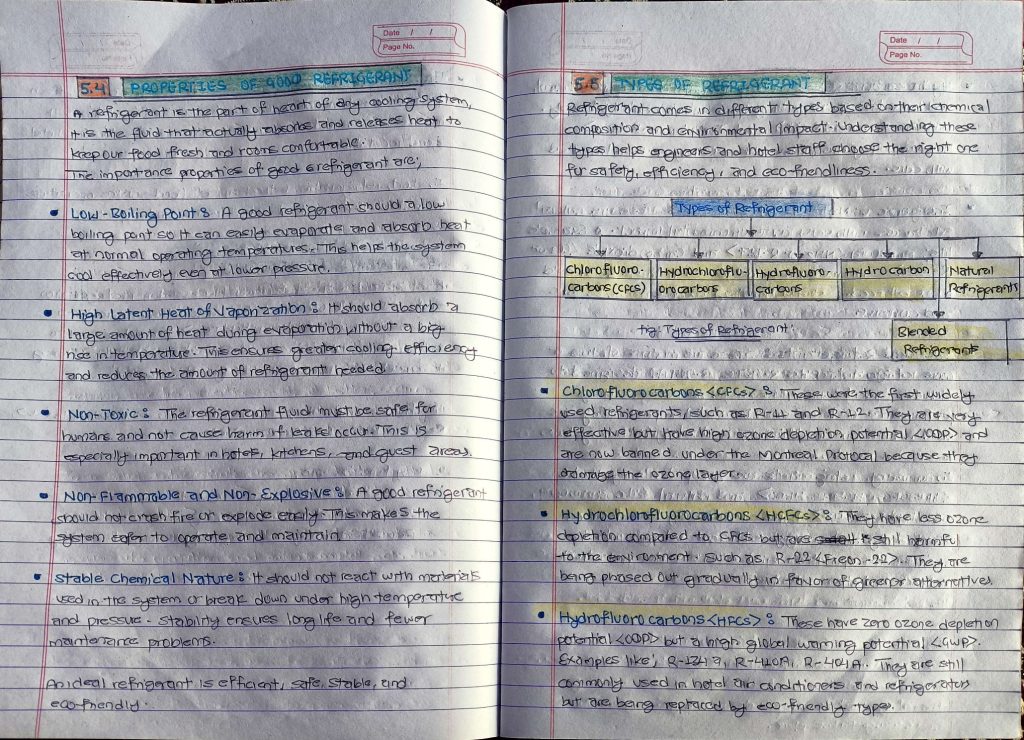 Date / /
Page No.
5.4 PROPERTIES OF GOOD REFRIGERANT
A refrigerant is the part of heart of any cooling system,
it is the fluid that actually absorbs and releases heat to
keep our food fresh and rooms comfortable.
The importance properties of good refrigerant are;
• Low-Boiling Point: A good refrigerant should a low
boiling point so it can easily evaporate and absorb heat
at normal operating temperatures. This helps the system
cool effectively even at lower pressure.
• High Latent Heat of Vaporization: It should absorb a
large amount of heat during evaporation without a big
rise in temperature. This ensures greater cooling efficiency
and reduces the amount of refrigerant needed.
• Non-Toxic: The refrigerant fluid must be safe for
humans and not cause harm if leaks occur. This is
especially important in hotels, kitchens, and guest areas.
• Non-Flammable and Non-Explosive: A good refrigerant
should not catch fire or explode easily. This makes the
system safer to operate and maintain.
• Stable Chemical Nature: It should not react with materials
used in the system or break down under high temperature
and pressure. Stability ensures long life and fewer
maintenance problems.
An ideal refrigerant is efficient, safe, stable, and
eco-friendly.
Date / /
Page No.
5.5 TYPES OF REFRIGERANT
Refrigerant comes in different types based on their chemical
composition and environmental impact. Understanding these
types helps engineers and hotel staff choose the right one
for safety, efficiency, and eco-friendliness.
Types of Refrigerant
Chlorofluoro-
carbons (CFCs)
Hydrochloroflu-
orocarbons
Hydrofluoro-
carbons
Hydrocarbon
Natural
Refrigerants
Blended
Refrigerants
fig: Types of Refrigerant.
• Chlorofluorocarbons <CFCs>: These were the first widely
used refrigerants, such as R-11 and R-12. They are very
effective but have high ozone depletion potential <ODP> and
are now banned under the Montreal Protocal because they
damage the ozone layer.
• Hydrochlorofluorocarbons <HCFCs>: They have less ozone
depletion compared to CFCs but are still harmful
to the environment. Such as, R-22 <Freon-22>. They are
being phased out gradually in favor of greener alternatives.
• Hydrofluorocarbons <HFCs>: These have zero ozone depletion
potential <ODP> but a high global warming potential <GWP>.
Examples like; R-134a, R-410A, R-404A. They are still
commonly used in hotel air conditioners and refrigerators
but are being replaced by eco-friendly types.